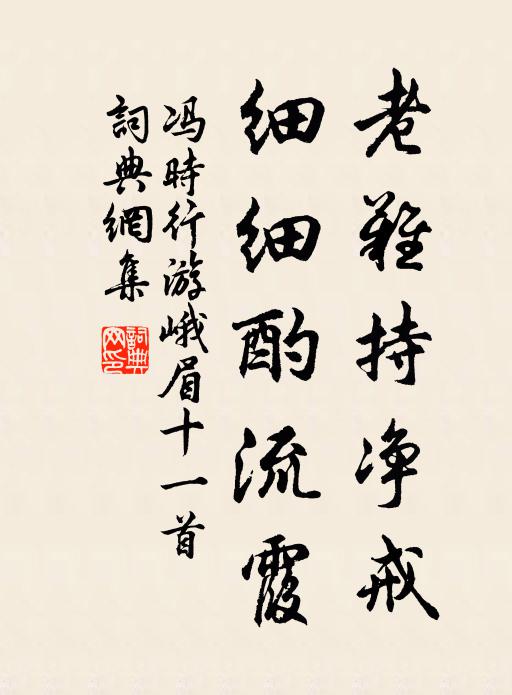 老難持净戒
细细酌流霞
冯時行游峨眉十一首
詞典網集
詞典
网印